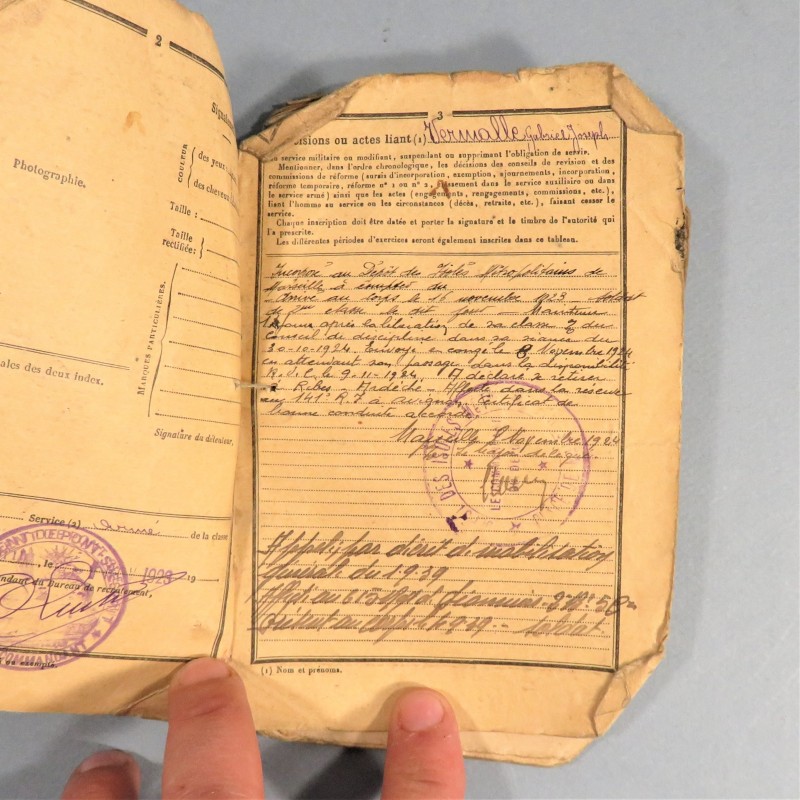 2
Photographie.
COULEUR
des yeux
des cheveux
Taille :
Taille
rectifiée:
MARQUES PARTICULIÈRES.
ales des deux index.
Signature du détenteur.
Service (2) armé de la classe
, le 1923 19
endant du Bureau de recrutement,
3
isions ou actes liant (1) Vermalle Gabriel Joseph
au service militaire ou modifiant, suspendant ou supprimant l'obligation de servir.
Mentionner, dans l'ordre chronologique, les décisions des conseils de revision et des
commissions de réforme (sursis d'incorporation, exemption, ajournements, incorporation,
réforme temporaire, réforme n° 1 ou n° 2, classement dans le service auxiliaire ou dans
le service armé) ainsi que les actes (engagements, rengagements, commissions, etc.),
liant l'homme au service ou les circonstances (décès, retraite, etc.), faisant cesser le
service.
Chaque inscription doit être datée et porter la signature et le timbre de l'autorité qui
l'a prescrite.
Les différentes périodes d'exercices seront également inscrites dans ce tableau.
Incorporé au Dépôt des Isolés Métropolitains de
Marseille à compter du
Arrivé au corps le 16 novembre 1923 soldat
de 2me classe le dit jour Maintenu
jours après la libération de sa classe du
Conseil de discipline dans sa séance du
30-10-1924. Envoyé en congé le 8 Novembre 1924
en attendant son passage dans la disponibilité
le 9.11-1924. A déclaré se retirer
à Ribes - Ardèche - Affecté dans la réserve
au 141e R.I à Avignon. Certificat de
bonne conduite accordé
Marseille 8 Novembre 1924
Le Major délégué
DES ISOLÉS
Appelé par décret de mobilisation
générale du 1.9.39
Affecté au Pionniers
au corps le 9.39 - soldat
(1) Nom et prénoms.